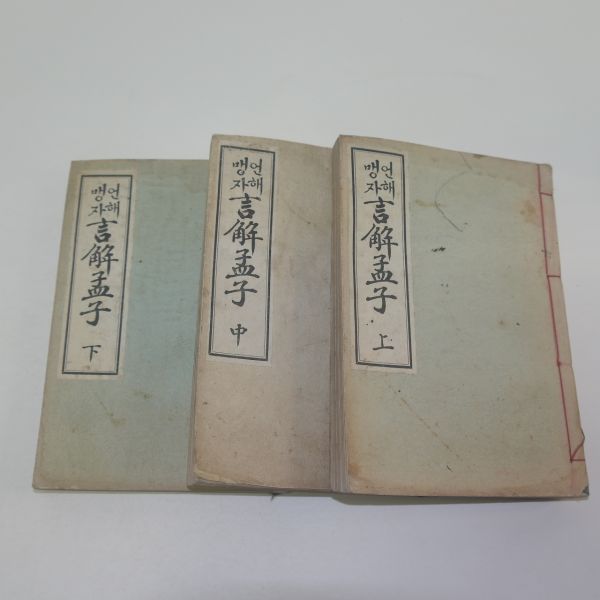 언해
맹자
言解孟子
下
언해
맹자
言解孟子
中
언해
맹자
言解孟子
上